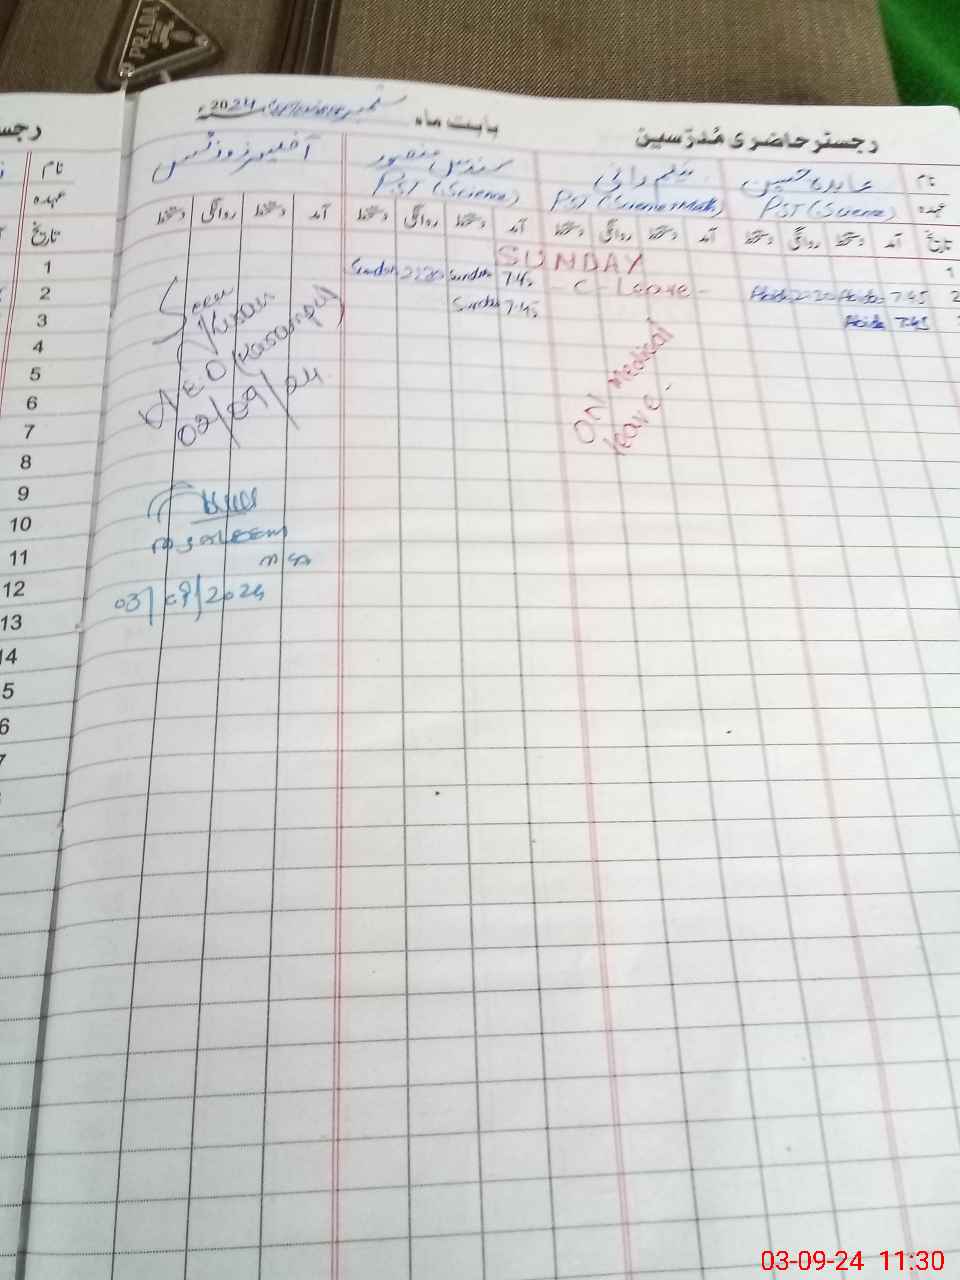 PRADA
رجسٹر حاضری مدرسین
بابت ماہ ستمبر 2024ء
نام عابدہ حسین نیلم رانی سندس منصور آفیسرز وزٹس
عہدہ PST (Science) PST (Science+Math) PST (Science)
تاریخ آمد دستخط روانگی دستخط آمد دستخط روانگی دستخط آمد دستخط روانگی دستخط آمد دستخط روانگی دستخط
نام
عہدہ
تاریخ
1 SUNDAY
2 7:45 Abida 2:20 Abida - C - Leave - 7:45 Sundas 2:20 Sundas
7:45 Abida 7:45 Sundas
ON Medical
leave
Kiran
AEO
02/09/24
M. Saleem
03/09/2024
1
2
3
4
5
6
7
8
9
10
11
12
13
14
5
6
7
03-09-24 11:30